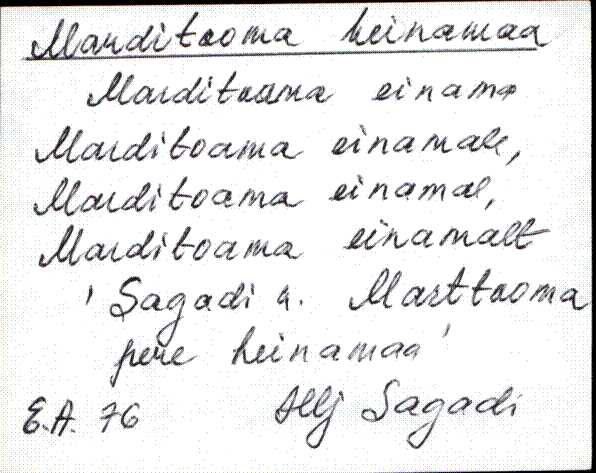 Marditooma heinamaa
Marditoama einama
Marditoama einamale,
Marditoama einamal,
Marditoama einamalt
' Sagadi k. Marttooma
pere heinamaa '
E.A. 76 Hlj Sagadi